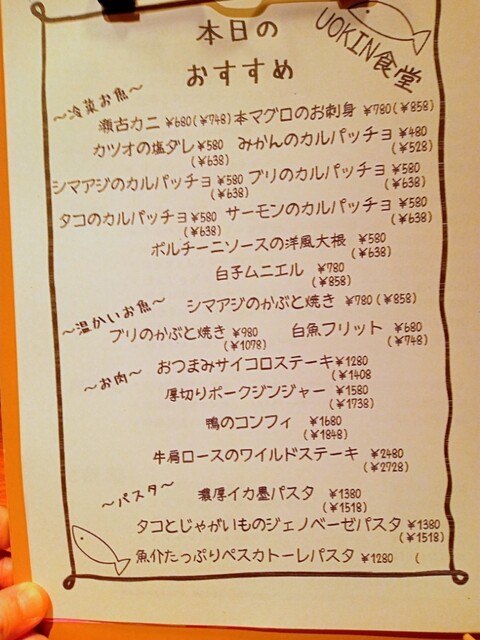 本日の
おすすめ
UOKIN食堂
～冷菜お魚～
瀬古カニ ¥680(¥748) 本マグロのお刺身 ¥780(¥858)
カツオの塩ダレ ¥580 みかんのカルパッチョ ¥480
(¥638) (¥528)
シマアジのカルパッチョ ¥580 ブリのカルパッチョ ¥580
(¥638) (¥638)
タコのカルパッチョ ¥580 サーモンのカルパッチョ ¥580
(¥638) (¥638)
ポルチーニソースの洋風大根 ¥580
(¥638)
白子ムニエル ¥780
(¥858)
～温かいお魚～ シマアジのかぶと焼き ¥780(¥858)
ブリのかぶと焼き ¥980 白魚フリット ¥680
(¥1078) (¥748)
～お肉～ おつまみサイコロステーキ ¥1280
(¥1408
厚切りポークジンジャー ¥1580
(¥1738)
鴨のコンフィ ¥1680
(¥1848)
牛肩ロースのワイルドステーキ ¥2480
(¥2728)
～パスタ～ 濃厚イカ墨パスタ ¥1380
(¥1518)
タコとじゃがいものジェノベーゼパスタ ¥1380
(¥1518)
魚介たっぷりペスカトーレパスタ ¥1280 (